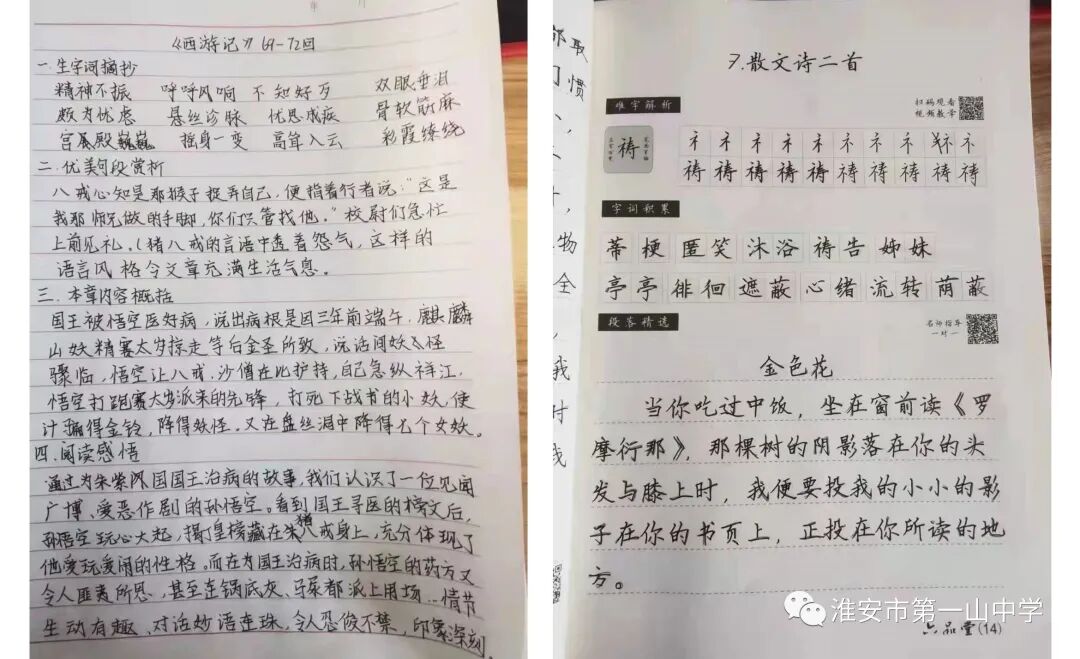 年 月
《西游记》69-72回
一.生字词摘抄
精神不振 呼呼风响 不知好歹 双眼垂泪
颇为忧虑 悬丝诊脉 忧思成疾 骨软筋麻
宫殿巍巍 摇身一变 高耸入云 彩霞缭绕
二.优美句段赏析
八戒心知是那猴子捉弄自己,便指着行者说:“这是
我那师兄做的手脚,你们只管找他。”校尉们急忙
上前见礼。(猪八戒的言语中透着怨气,这样的
语言风格令文章充满生活气息。
三.本章内容概括
国王被悟空医好病,说出病根是因三年前端午,麒麟
山妖精赛太岁掠走等后金圣所致,说话间妖怪
骤临,悟空让八戒.沙僧在此护持,自己急纵祥江.
悟空打跑赛太岁派来的先锋,打死下战书的小妖,使
计骗得金铃,降得妖怪。又在盘丝洞中降得七个女妖。
四.阅读感悟
通过为朱紫国国王治病的故事,我们认识了一位见闻
广博、爱恶作剧的孙悟空。看到国王寻医的榜文后,
孙悟空玩心大起,撕皇榜藏在猪八戒身上,充分体现了
他爱玩爱闹的性格。而在为国王治病时,孙悟空的药方又
令人匪夷所思,甚至连锅底灰、马尿都派上用场…情节
生动有趣、对话妙语连珠,令人忍俊不禁,印象深刻.
7.散文诗二首
难字解析 扫码观看
视频教学
祷 礻 礻 礻 礻 礻 礻 礻 礻 礻
祷 祷 祷 祷 祷 祷 祷 祷 祷 祷
字词积累
蒂 梗 匿笑 沐浴 祷告 姊妹
亭亭 徘徊 遮蔽 心绪 流转 荫蔽
段落精选 名师指导
一对一
金色花
当你吃过中饭,坐在窗前读《罗
摩衍那》,那棵树的阴影落在你的头
发与膝上时,我便要投我的小小的影
子在你的书页上,正投在你所读的地
方。
淮安市第一山中学
六品堂(14)